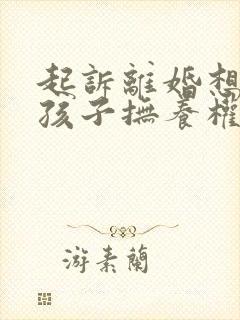 起訴離婚想
孩子撫養權
游素蘭